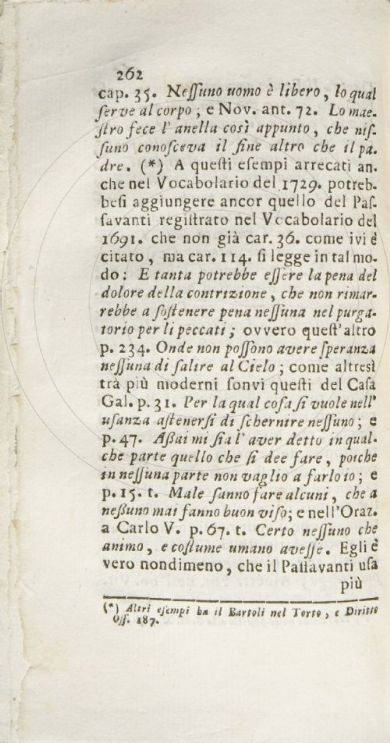 262
cap. 35. Neſſuno uomo è libero, lo qual
ſerve al corpo; e Nov. ant. 72. Lo mae-
ſtro fece l'anella così appunto, che niſ-
ſuno conoſceva il fine altro che il pa-
dre. (*) A queſti eſempi arrecati an-
che nel Vocabolario del 1729. potreb-
beſi aggiungere ancor quello del Paſ-
ſavanti regiſtrato nel Vocabolario del
1691. che non già car. 36. come ivi è
citato, ma car. 114. ſi legge in tal mo-
do: E tanta potrebbe eſſere la pena del
dolore della contrizione, che non rimar-
rebbe a ſoſtenere pena neſſuna nel purga-
torio per li peccati; ovvero queſt'altro
p. 234. Onde non poſſono avere ſperanza
neſſuna di ſalire al Cielo; come altresì
trà più moderni ſonvi queſti del Caſa
Gal. p. 31. Per la qual coſa ſi vuole nell'
uſanza aſtenerſi di ſchernire neſſuno; e
p. 47. Aßai mi ſia l'aver detto in qual-
che parte quello che ſi dee fare, poiche
in neſſuna parte non vaglio a farlo io; e
p. 15. t. Male ſanno fare alcuni, che a
neßuno mai fanno buon viſo; e nell'Oraz.
a Carlo V. p. 67. t. Certo neſſuno che
animo, e coſtume umano aveſſe. Egli è
vero nondimeno, che il Paſſavanti uſa
più
(*) Altri eſempi ha il Bartoli nel Torto, e Diritto
Oſſ. 187.